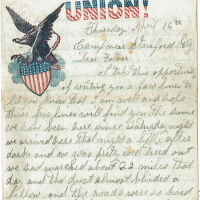 UNION!
Thursday April 16th
Camp near Stanford Ky
Dear Father
I take this opportunity
of writing you a few lines to
let you know that I am well and hope
these few lines will find you the same
we have been here since Saturday night
we arrived here that night a little after
dark and we was pretty well tired out
we had marched about 22 miles that
day and the dust almost blinded a
fellow and the roads were so hard